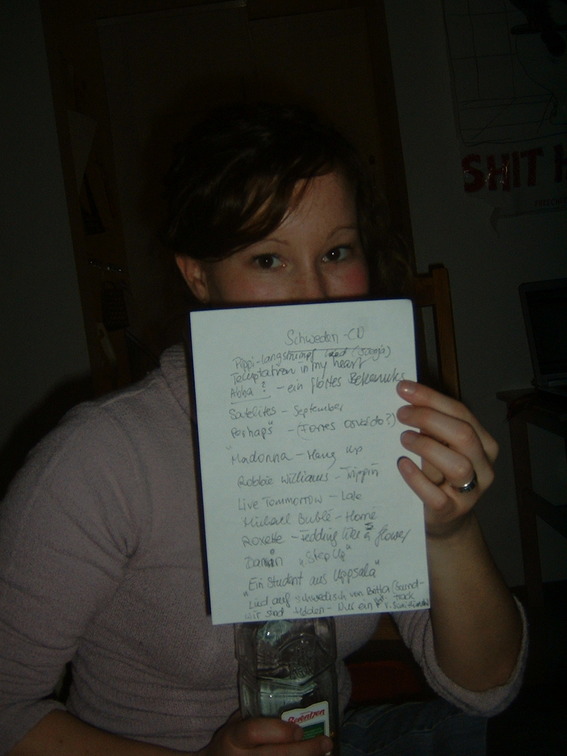 SHIT
Schweden-CD
Pippi-Langstrumpf Lied
Temptation in my heart
Abba? - ein flottes
Satelites - September
Perhaps -
Madonna - Hang up
Robbie Williams - Trippin
Live Tommorrow - Lake
Michael Bublé - Home
Roxette - Fedding like a flower
Darin "Step Up"
"Ein Student aus Uppsala"
Lied auf schwedisch von
Wir sind Helden - Nur ein